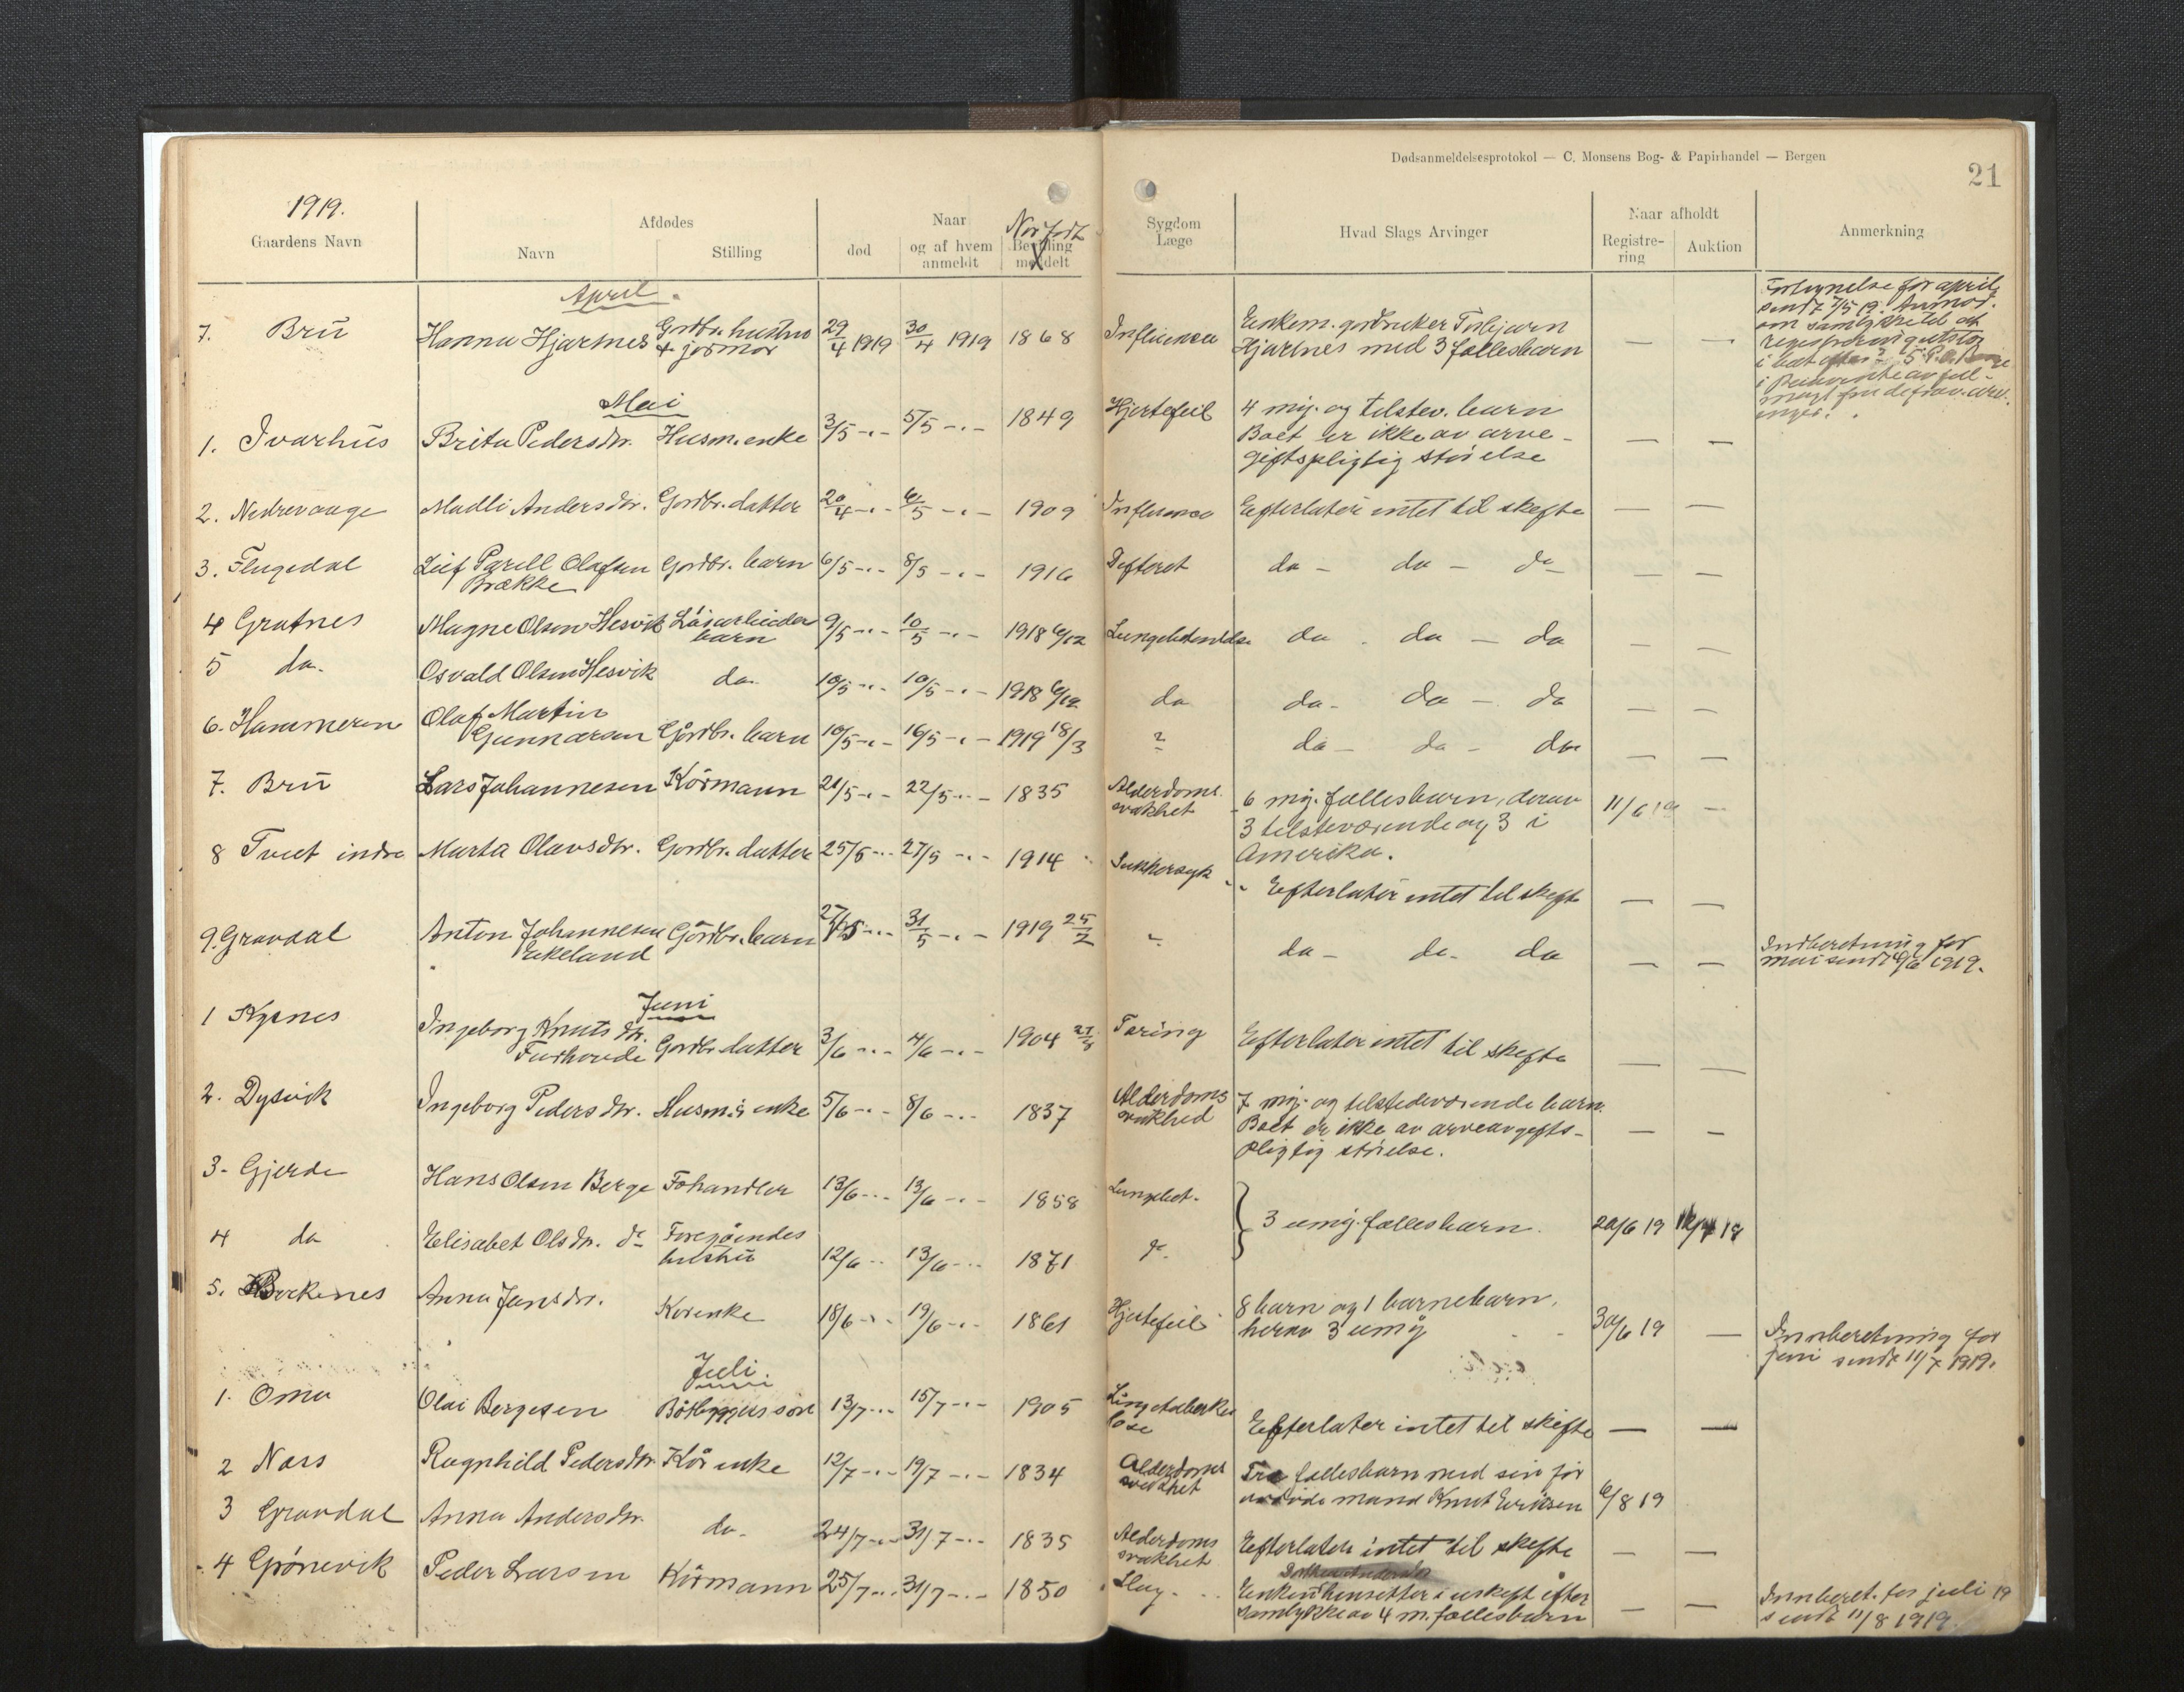 Dødsanmeldelsesprotokol — C. Monsens Bog- & Papirhandel — Bergen
21
1919.
Gaardens Navn
Afdødes
Navn
Stilling
Naar
død
og af hvem anmeldt
Nor født
Bevilling meddelt
Sygdom
Læge
Hvad Slags Arvinger
Naar afholdt
Registrering
Auktion
Anmerkning
April.
7. Brü Hanna Hjartnes Gardbr. hustru + jormor 29/4 1919 30/4 1919 1868 Influensa Enkem. gardbruker Torbjørn Hjartnes med 3 fællesbarn — —
for april
sendt 7/5 19. Anmod.
om samtykke til at
Mai
1. Ivarhüs Brita Pedersdtr. Husm. enke 3/5 -"- 5/5 -"- 1849 Hjertefeil 4 myj. og tilstev. barn
Boet er ikke av arve-
giftspligtig störelse — —
2. Nedrevaage Madli Andersdtr. Gardbr. datter 20/4 -"- 6/5 -"- 1909 Influensa Efterlater intet til skefte — —
3. Flugedal Leif Parell Olafsen Brække Gardbr. barn 6/5 -"- 8/5 -"- 1916 Difteret da — da — do — —
4 Gratnes Magne Olsen Hesvik Lösarbeider barn 9/5 -"- 10/5 -"- 1918 6/12 Lungebetendelse da - da — da — —
5 da. Osvald Olsen Hesvik da 10/5 -"- 10/5 -"- 1918 6/12 da da - da — da — —
6. Hammeren Olaf Martin Gunnarsen Gårdbr. barn 10/5 -"- 16/5 -"- 1919 18/3 ? da — da — da — —
7. Brü Lars Johannesen Körmann 21/5 -"- 22/5 -"- 1835 Alderdoms svakhet 6 myj. fællesbarn, derav
3 tilsteværende og 3 i
Amerika. 11/6 19 —
8 Tveit indre Marta Olavsdtr. Gardbr. datter 25/5 -"- 27/5 -"- 1914 Sukkersyk Efterlater intet til skefte — —
9. Gravdal Anton Johannesen Eikeland Gårdbr. barn 27/5 -"- 31/5 -"- 1919 25/2 " da — da - da — — Indberetning for
mai sendt 6/6 1919.
Juni
1 Kysnes Ingeborg Knutsdtr. Furhovde Gardbr. datter 3/6 -"- 4/6 -"- 1904 Tæring Efterlater intet til skefte — —
2. Dysvik Ingeborg Pedersdtr. Husm.s enke 5/6 -"- 8/6 -"- 1837 Alderdoms svakhed 7 myj. og tilstedeværende barn.
Boet er ikke av arveavgifts-
pligtig störelse. — —
3- Gjerde Hans Olsen Berge Fehandler 13/6 -"- 13/6 -"- 1858 Lungebet.
4 da Elisabet Olsdtr. do Foregåendes hustrü 12/6 -"- 13/6 -"- 1871 do } 3 umyj. fællesbarn. 20/6 19
5. Berkenes Anna Jansdtr. Kårenke 18/6 -"- 19/6 -"- 1861 Hjertefeil 8 barn og 1 barnebarn,
herav 3 umy 30/6 19 — Innberetning for
juni sendt 11/7 1919.
Juli
1. Oma Olai Bergesen Båtbyggers sön 13/7 -"- 15/7 -"- 1905 Lungetuberkulose Efterlater intet til skifte — —
2 Næs Ragnhild Pedersdtr. Kår enke 12/7 -"- 19/7 -"- 1834 Alderdoms svakhet Tre fællesbarn med sin før
avdøde mand Knut Eriksen 6/8 19
3 Gravdal Anna Andersdtr. da. 24/7 -"- 31/7 -"- 1835 Alderdoms svakhet Efterlater intet til skefte — —
4 Grönevik Peder Larsen Kårmann 25/7 -"- 31/7 -"- 1850 Slag - Enken hensetter i uskeft efter
samtykke av 4 m. fællesbarn — — Innberet. for juli 19
sendt 11/8 1919.